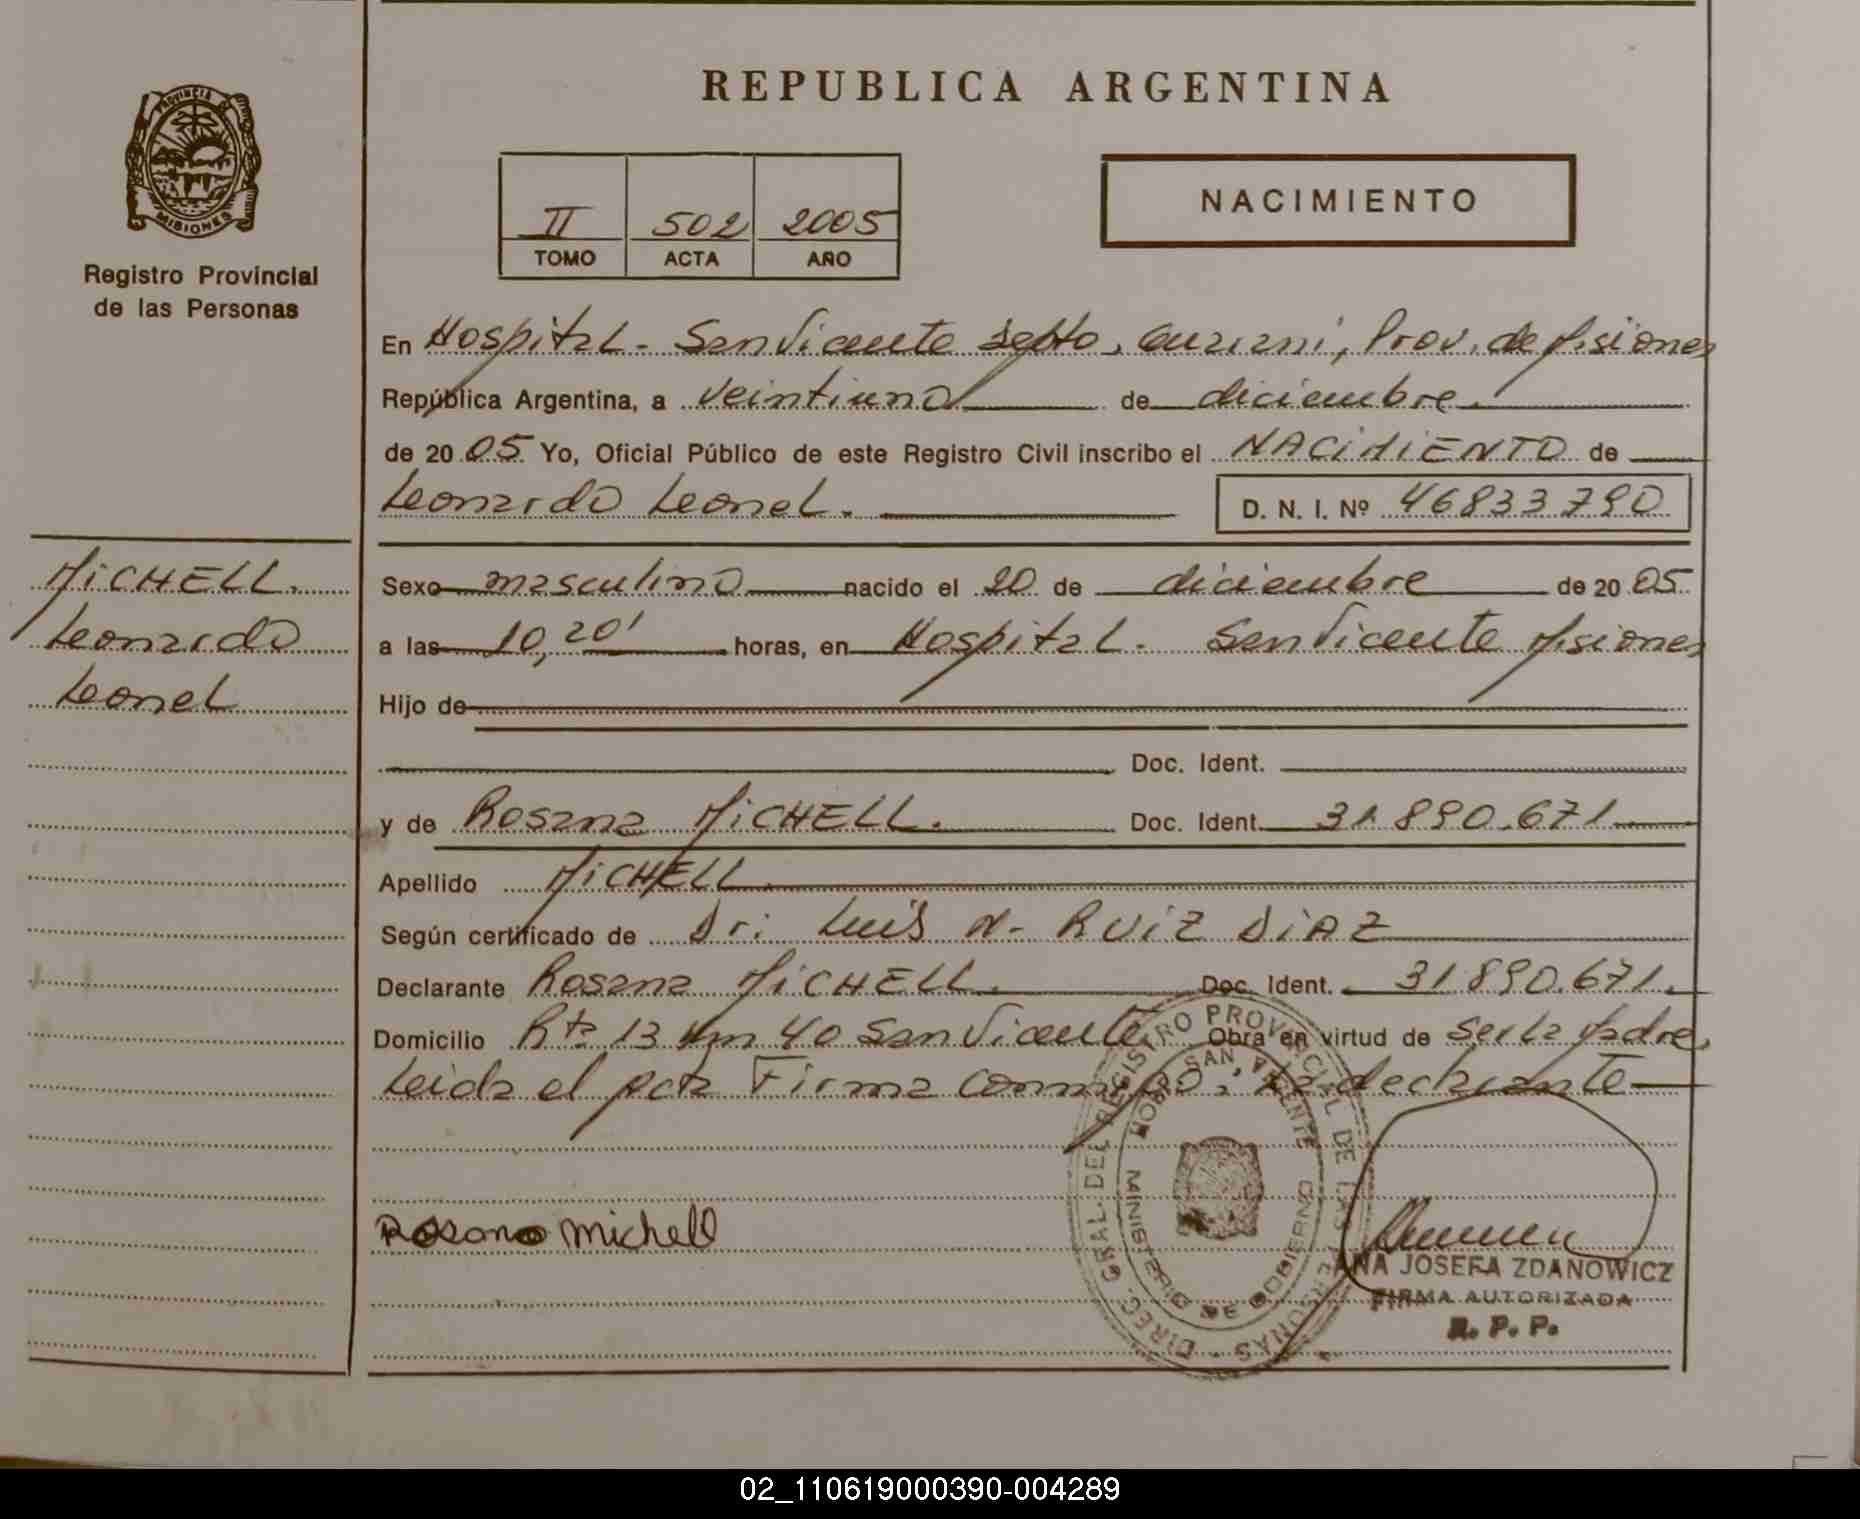 REPUBLICA ARGENTINA
PROVINCIA DE
MISIONES
Registro Provincial
de las Personas
II 502 2005
TOMO ACTA AÑO
NACIMIENTO
En Hospital - San Vicente Depto, Guaraní, Prov. de Misiones
República Argentina, a veintiuno de diciembre
de 2005 Yo, Oficial Público de este Registro Civil inscribo el NACIMIENTO de
Leonardo Leonel. D. N. I. Nº 46833790
MICHELL.
Leonardo
Leonel
Sexo masculino nacido el 20 de diciembre de 2005
a las 10,20' horas, en Hospital. San Vicente Misiones
Hijo de
Doc. Ident.
y de Rosana MICHELL. Doc. Ident. 31.890.671
Apellido MICHELL
Según certificado de Dr. Luis N. RUIZ DIAZ
Declarante Rosana MICHELL. Doc. Ident. 31890.671.
Domicilio Rta 13 Km 40 San Vicente. Obra en virtud de ser la Madre,
Leida el acta Firma conmigo, la declarante
DIREC. GRAL. DEL REGISTRO PROVINCIAL DE LAS PERSONAS
SAN VICENTE
MINISTERIO DE GOBIERNO
Rosana Michell
ANA JOSEFA ZDANOWICZ
FIRMA AUTORIZADA
R. P. P.
02_110619000390-004289